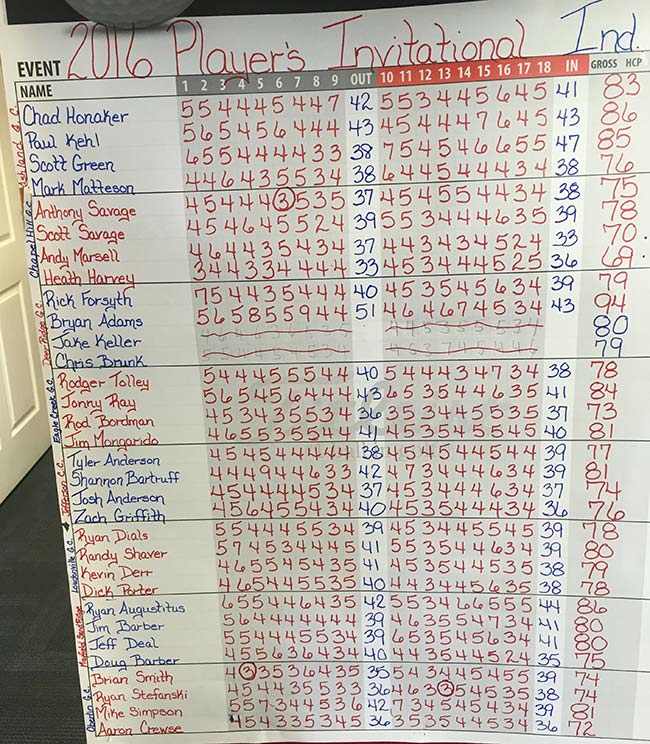 2016 Player's Invitational Ind.
EVENT
NAME 1 2 3 4 5 6 7 8 9 OUT 10 11 12 13 14 15 16 17 18 IN GROSS HCP
Ashland G.C.
Chad Honaker 5 5 4 4 4 5 4 4 7 42 5 5 3 4 4 5 6 4 5 41 83
Paul Kehl 5 6 5 4 5 6 4 4 4 43 4 5 4 4 4 7 6 4 5 43 86
Scott Green 6 5 5 4 4 4 4 3 3 38 7 5 4 5 4 6 6 5 5 47 85
Mark Matteson 4 4 6 4 3 5 5 3 4 38 6 4 4 5 4 4 4 3 4 38 76
Chapel Hill G.C.
Anthony Savage 4 5 4 4 4 3 5 3 5 37 4 5 4 5 5 4 4 3 4 38 75
Scott Savage 4 5 4 6 4 5 5 2 4 39 5 5 3 4 4 4 6 3 5 39 78
Andy Marsell 4 6 4 4 3 5 4 3 4 37 4 4 3 4 3 4 5 2 4 33 70
Heath Harvey 3 4 4 3 3 4 4 4 4 33 4 5 3 4 4 4 5 2 5 36 69
Deer Ridge G.C.
Rick Forsyth 7 5 4 4 3 5 4 4 4 40 4 5 3 5 4 5 6 3 4 39 79
Bryan Adams 5 6 5 8 5 5 9 4 4 51 4 6 4 6 7 4 5 3 4 43 94
Jake Keller 80
Chris Brunk 79
Eagle Creek G.C.
Rodger Tolley 5 4 4 4 5 5 5 4 4 40 5 4 4 4 3 4 7 3 4 38 78
Jonny Ray 5 6 5 4 5 6 4 4 4 43 6 5 3 5 4 4 6 3 5 41 84
Rod Bordman 4 5 3 4 3 5 5 3 4 36 3 5 3 4 4 5 5 3 5 37 73
Jim Mongarido 4 6 5 5 3 5 5 4 4 41 4 5 3 4 5 5 5 4 5 40 81
Jefferson C.C.
Tyler Anderson 4 5 4 5 4 4 4 4 4 38 4 5 4 5 4 4 5 4 4 39 77
Shannon Bartruff 4 4 4 9 4 4 6 3 3 42 4 7 3 4 4 4 6 3 4 39 81
Josh Anderson 4 5 4 4 4 4 5 3 4 37 4 5 3 4 4 4 6 3 4 37 74
Zach Griffith 4 5 6 4 5 5 4 3 4 40 4 5 3 5 4 4 4 3 4 36 76
Loudonville G.C.
Ryan Dials 5 5 4 4 4 5 5 3 4 39 4 5 3 4 4 5 5 4 5 39 78
Randy Shaver 5 7 4 5 3 4 4 4 5 41 5 5 3 5 4 4 6 3 4 39 80
Kevin Derr 4 6 5 5 4 5 4 3 5 41 4 5 3 5 4 4 5 3 5 38 79
Dick Porter 4 6 5 4 4 5 5 3 5 40 4 4 3 4 4 5 6 3 5 38 78
Ryan Augustitus 6 5 5 4 4 6 4 3 5 42 5 5 3 4 6 6 5 5 5 44 86
Jim Barber 5 6 4 4 4 4 4 4 4 39 4 6 3 5 5 4 7 3 4 41 80
Jeff Deal 5 5 4 4 4 5 5 3 4 39 6 5 3 5 4 5 6 3 4 41 80
Doug Barber 4 5 5 6 3 6 4 3 4 40 4 4 3 5 4 4 5 2 4 35 75
Oberlin G.C.
Brian Smith 4 2 3 5 3 6 4 3 5 35 5 4 3 4 4 5 4 5 5 39 74
Ryan Stefanski 4 5 4 4 3 5 5 3 3 36 4 6 3 3 5 4 5 3 5 38 74
Mike Simpson 5 5 7 3 4 4 5 3 6 42 7 3 4 5 4 5 4 3 4 39 81
Aaron Crewse 4 5 4 3 3 5 3 4 5 36 3 5 3 5 4 4 5 3 4 36 72